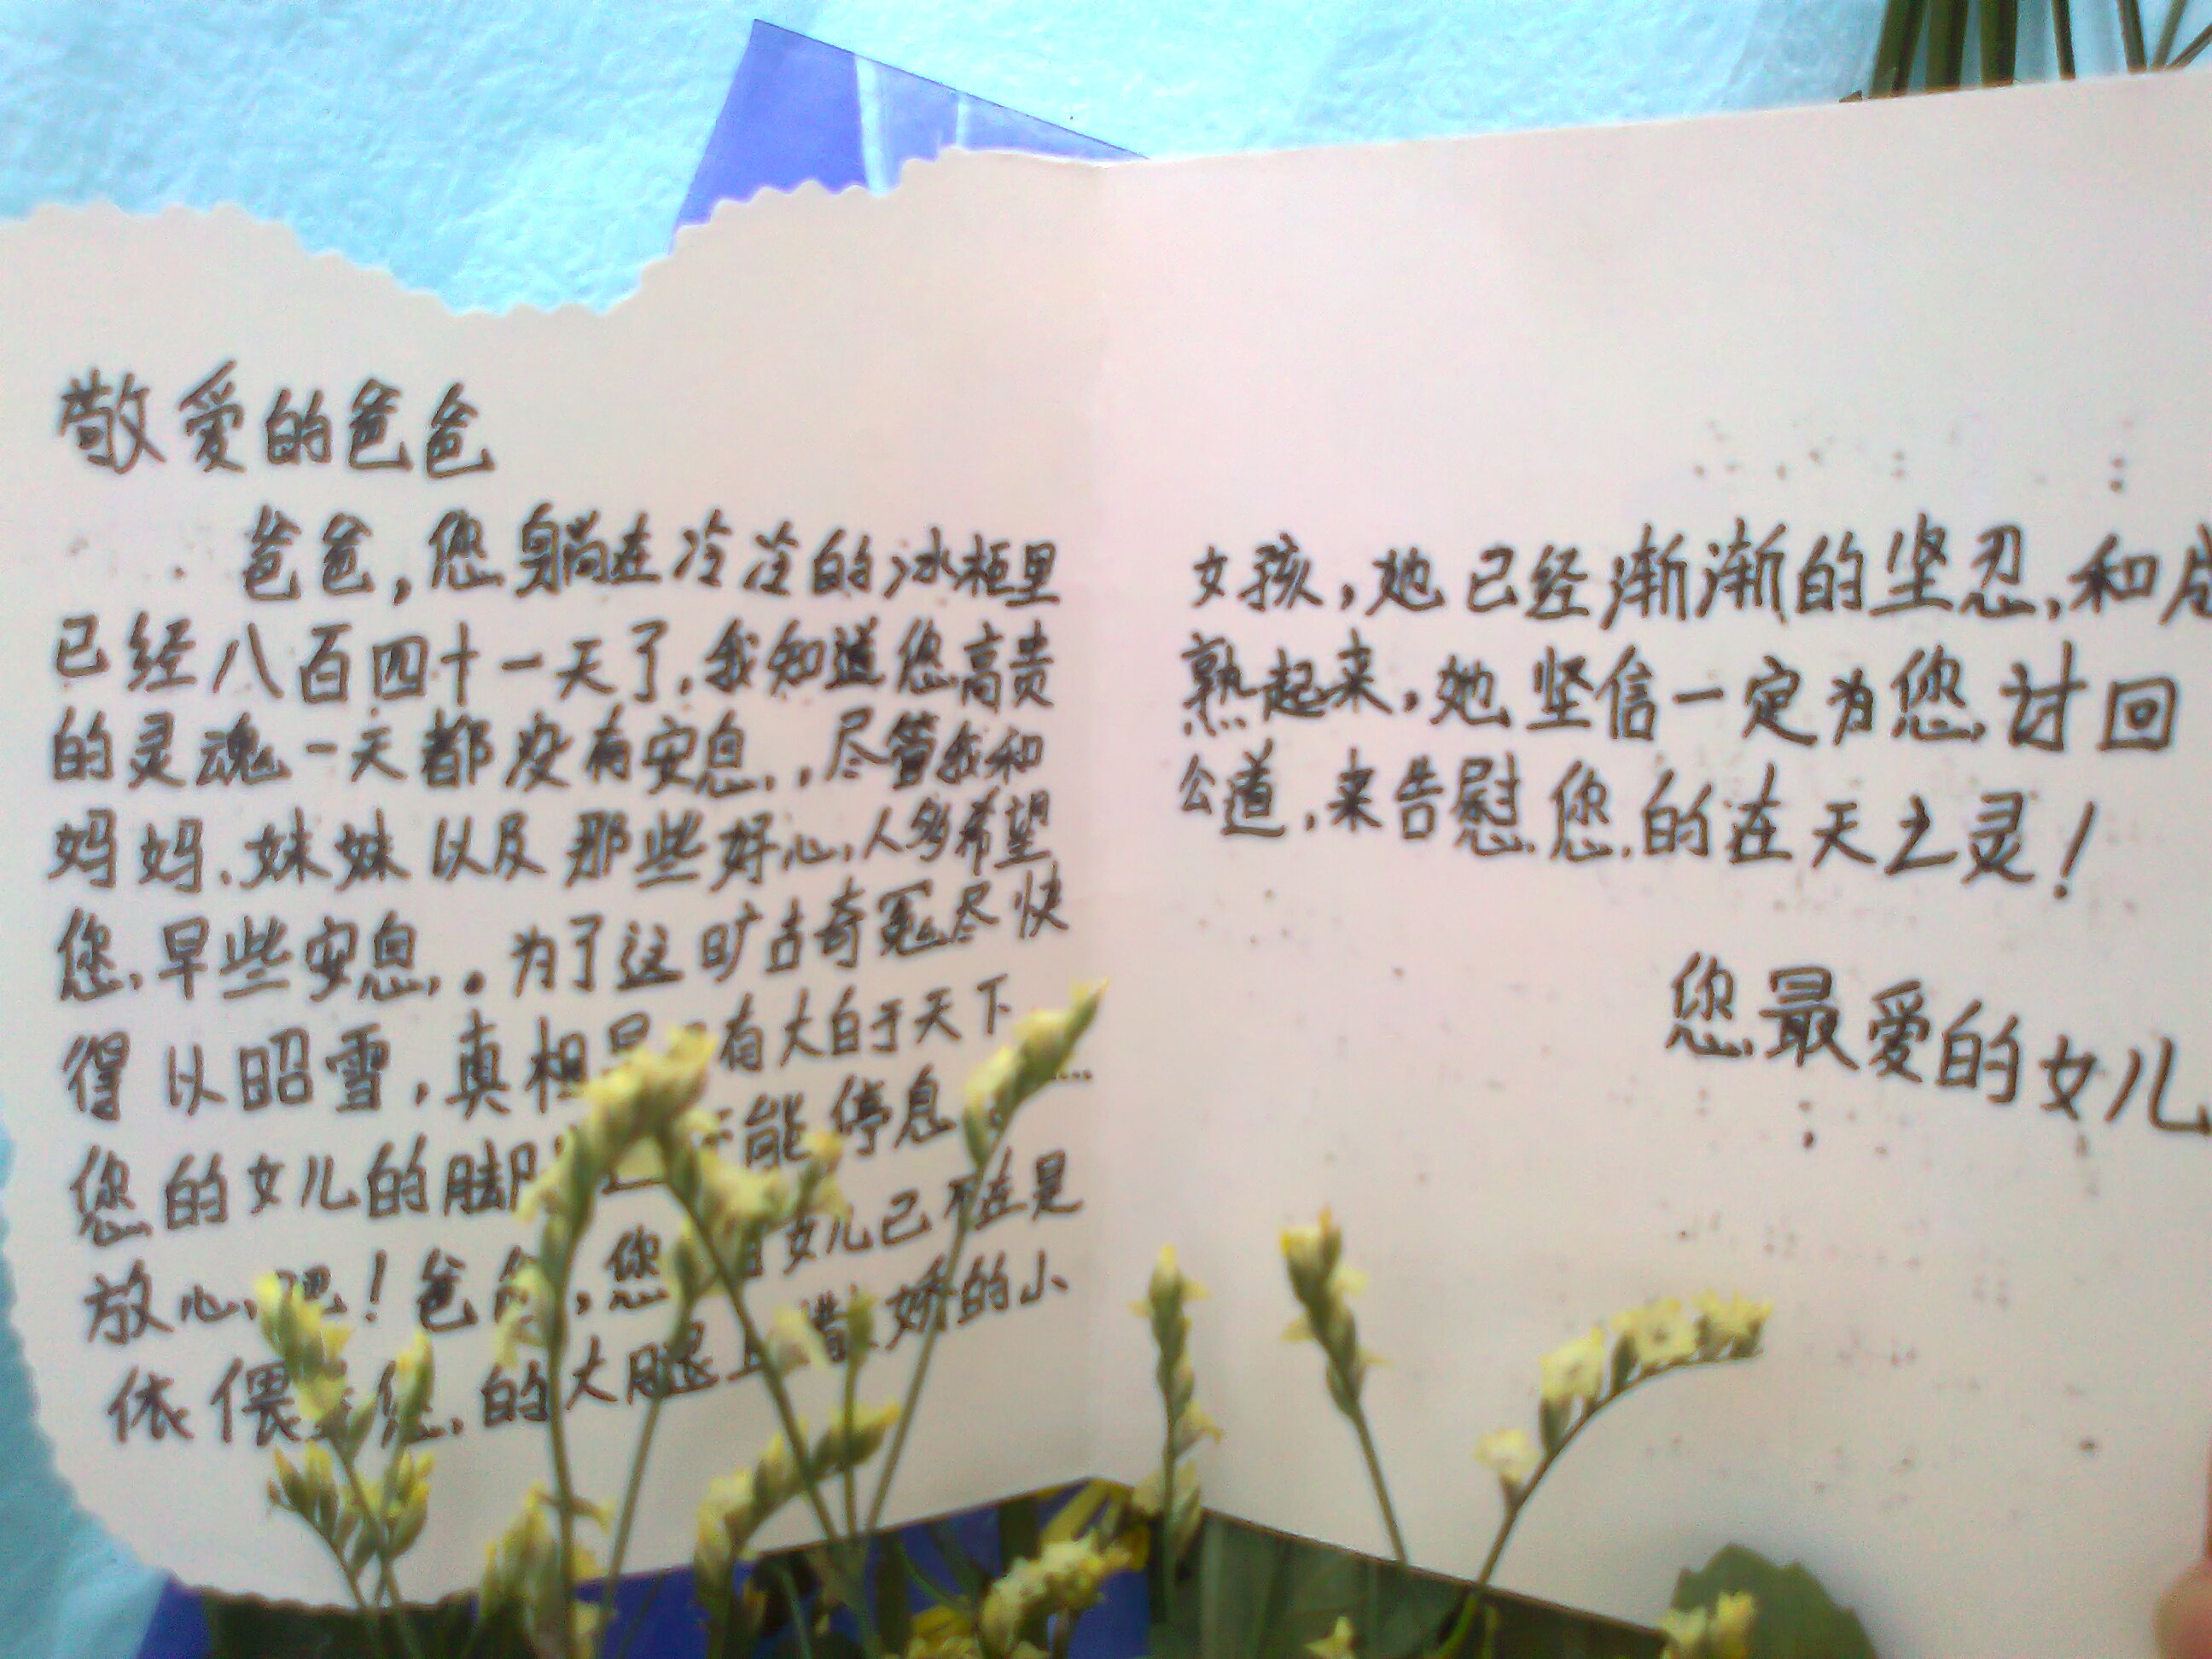 敬爱的爸爸
爸爸,您躺在冷冷的冰柜里
已经八百四十一天了,我知道您高贵
的灵魂一天都没有安息,尽管我和
妈妈、妹妹以及那些好心人多希望
您早些安息。为了这旷古奇冤尽快
得以昭雪,真相 有大白于天下
您的女儿的脚 能停息……
放心吧!爸爸,您 女儿已不在是
依偎 您的大腿上撒娇的小
女孩,她已经渐渐的坚忍,和成
熟起来,她坚信一定为您讨回
公道,来告慰您的在天之灵!
您最爱的女儿